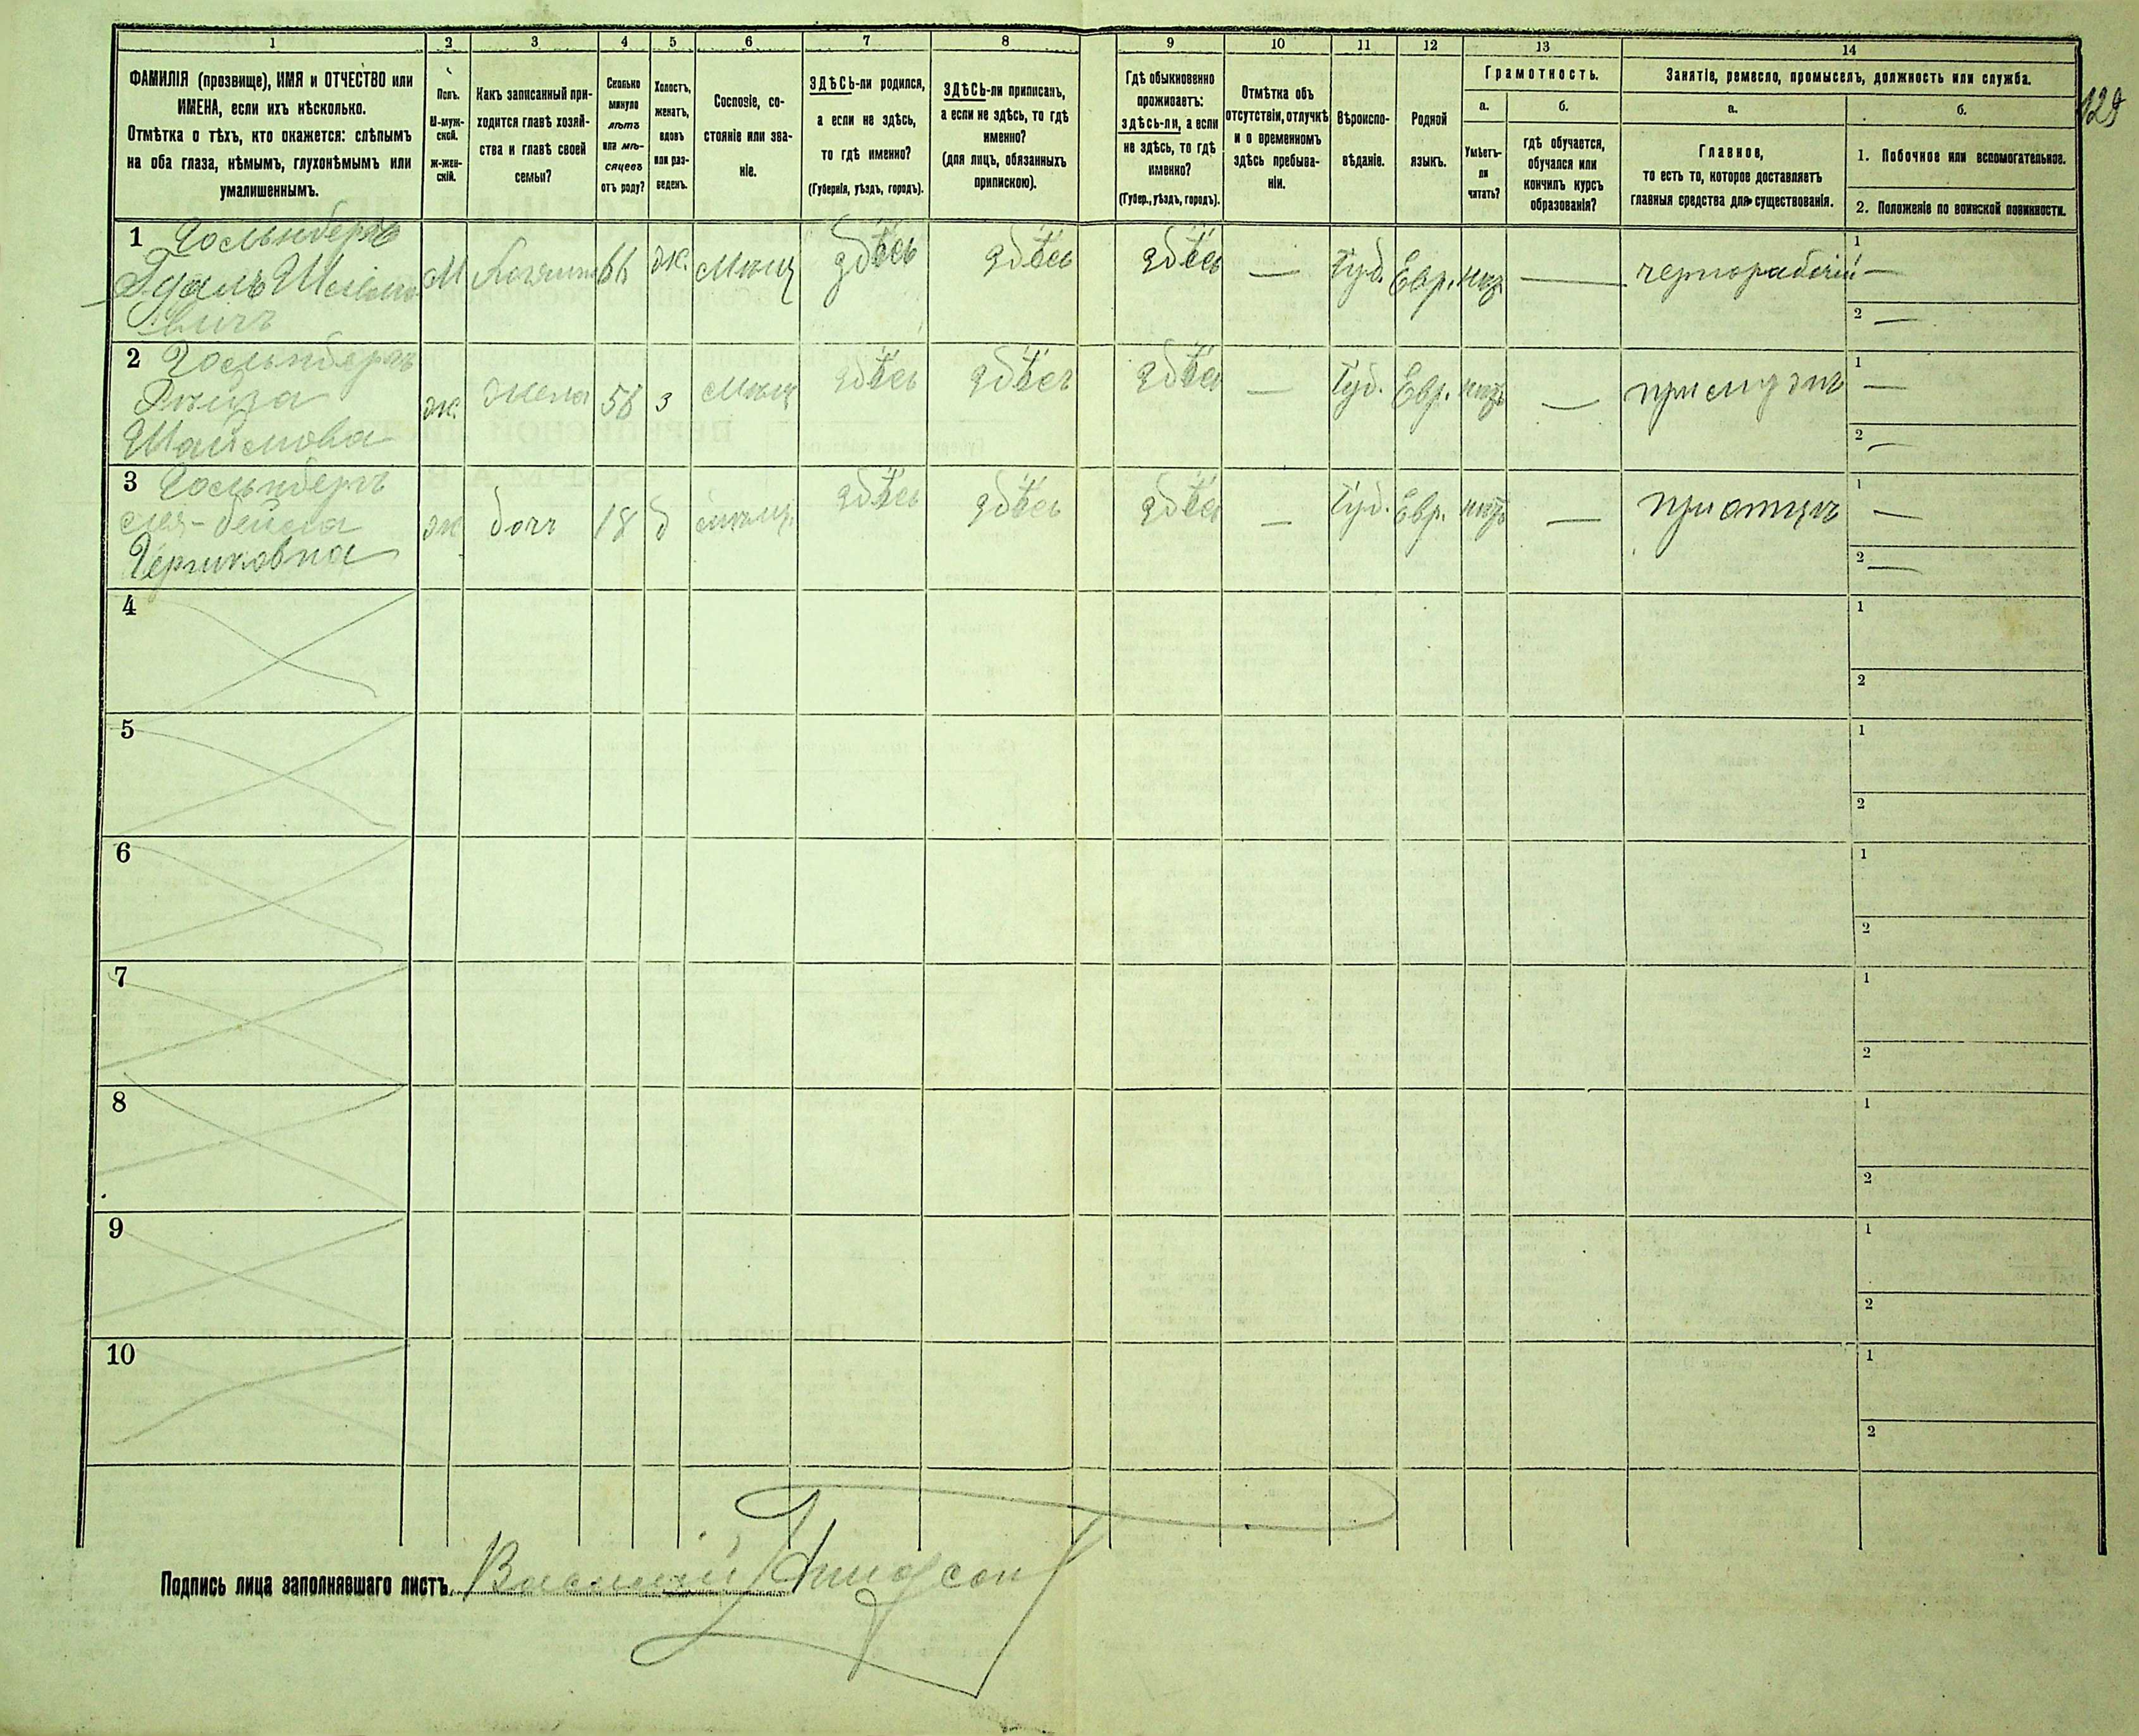 1 2 3 4 5 6 7 8 9 10 11 12 13 14
ФАМИЛІЯ (прозвище), ИМЯ и ОТЧЕСТВО или
ИМЕНА, если ихъ нѣсколько.
Отмѣтка о тѣхъ, кто окажется: слѣпымъ
на оба глаза, нѣмымъ, глухонѣмымъ или
умалишеннымъ.
Полъ.
М-муж-
ской.
Ж-жен-
скій.
Какъ записанный при-
ходится главѣ хозяй-
ства и главѣ своей
семьи?
Сколько
минуло
лѣтъ
или мѣ-
сяцевъ
отъ роду?
Холостъ,
женатъ,
вдовъ
или раз-
веденъ.
Сословіе, со-
стояніе или зва-
ніе.
ЗДѢСЬ-ли родился,
а если не здѣсь,
то гдѣ именно?
(Губернія, уѣздъ, городъ).
ЗДѢСЬ-ли приписанъ,
а если не здѣсь, то гдѣ
именно?
(для лицъ, обязанныхъ
припискою).
Гдѣ обыкновенно
проживаетъ:
здѣсь-ли, а если
не здѣсь, то гдѣ
именно?
(Губер., уѣздъ, городъ).
Отмѣтка объ
отсутствіи, отлучкѣ
и о временномъ
здѣсь пребыва-
ніи.
Вѣроиспо-
вѣданіе.
Родной
языкъ.
Грамотность.
а. б.
Умѣетъ-
ли
читать?
гдѣ обучается,
обучался или
кончилъ курсъ
образованія?
Занятіе, ремесло, промыселъ, должность или служба.
а. б.
Главное,
то есть то, которое доставляетъ
главныя средства для существованія.
1. Побочное или вспомогательное.
2. Положеніе по воинской повинности.
129
1 Гольнбергъ
М 66 ж. мѣщ здѣсь здѣсь здѣсь — Іуд. Евр. нѣтъ — чернорабочій 1 —
2 —
2 Гольнбергъ
Шаимова
ж. жена 58 з мѣщ здѣсь здѣсь здѣсь — Іуд. Евр. нѣтъ — при мужѣ 1 —
2 —
3 Гольнбергъ
ж дочь 18 д мѣщ. здѣсь здѣсь здѣсь — Іуд. Евр. нѣтъ — при отцѣ 1 —
2 —
4 1
2
5 1
2
6 1
2
7 1
2
8 1
2
9 1
2
10 1
2
Подпись лица заполнявшаго листъ